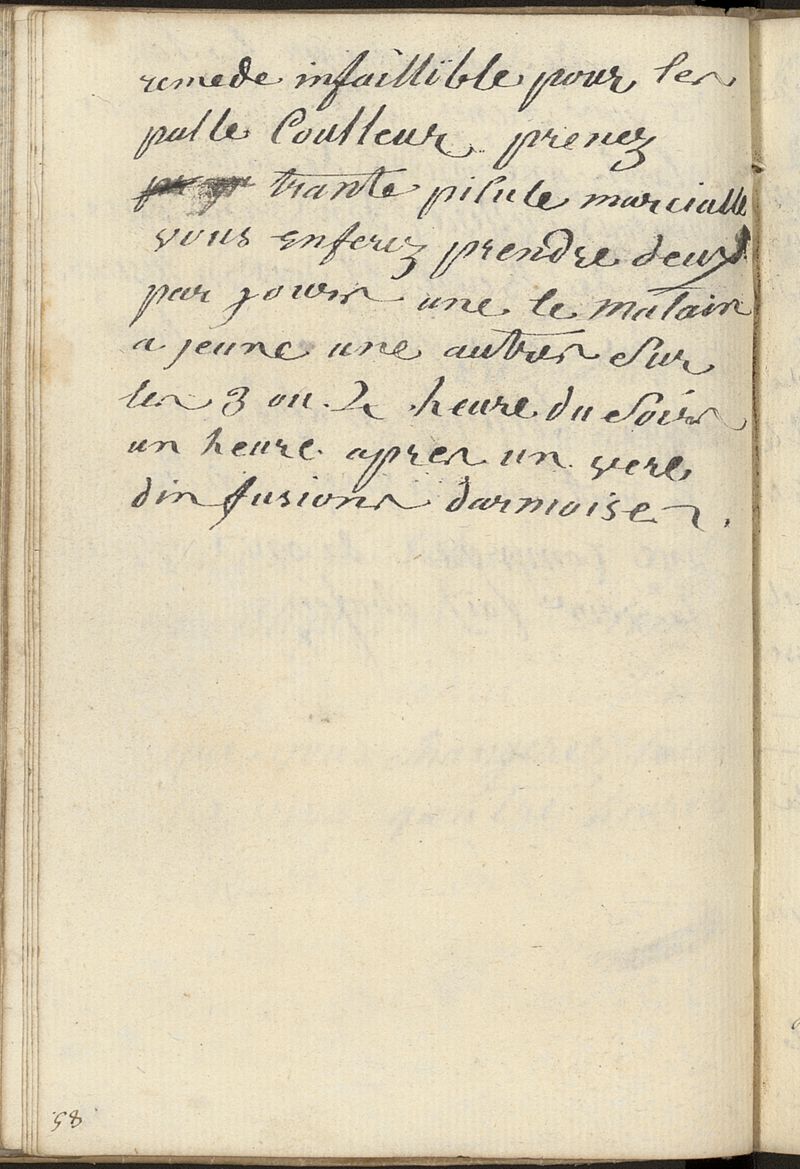 remede infaillible pour les
palle Coulleur prenez
trante pilule marcialle
vous enferez prendre deux
par jours une le matain
a jeune une autres Sur
les 3 ou 2 heure du Soirs
un heure apres un vere
din fusions darmoises.
58